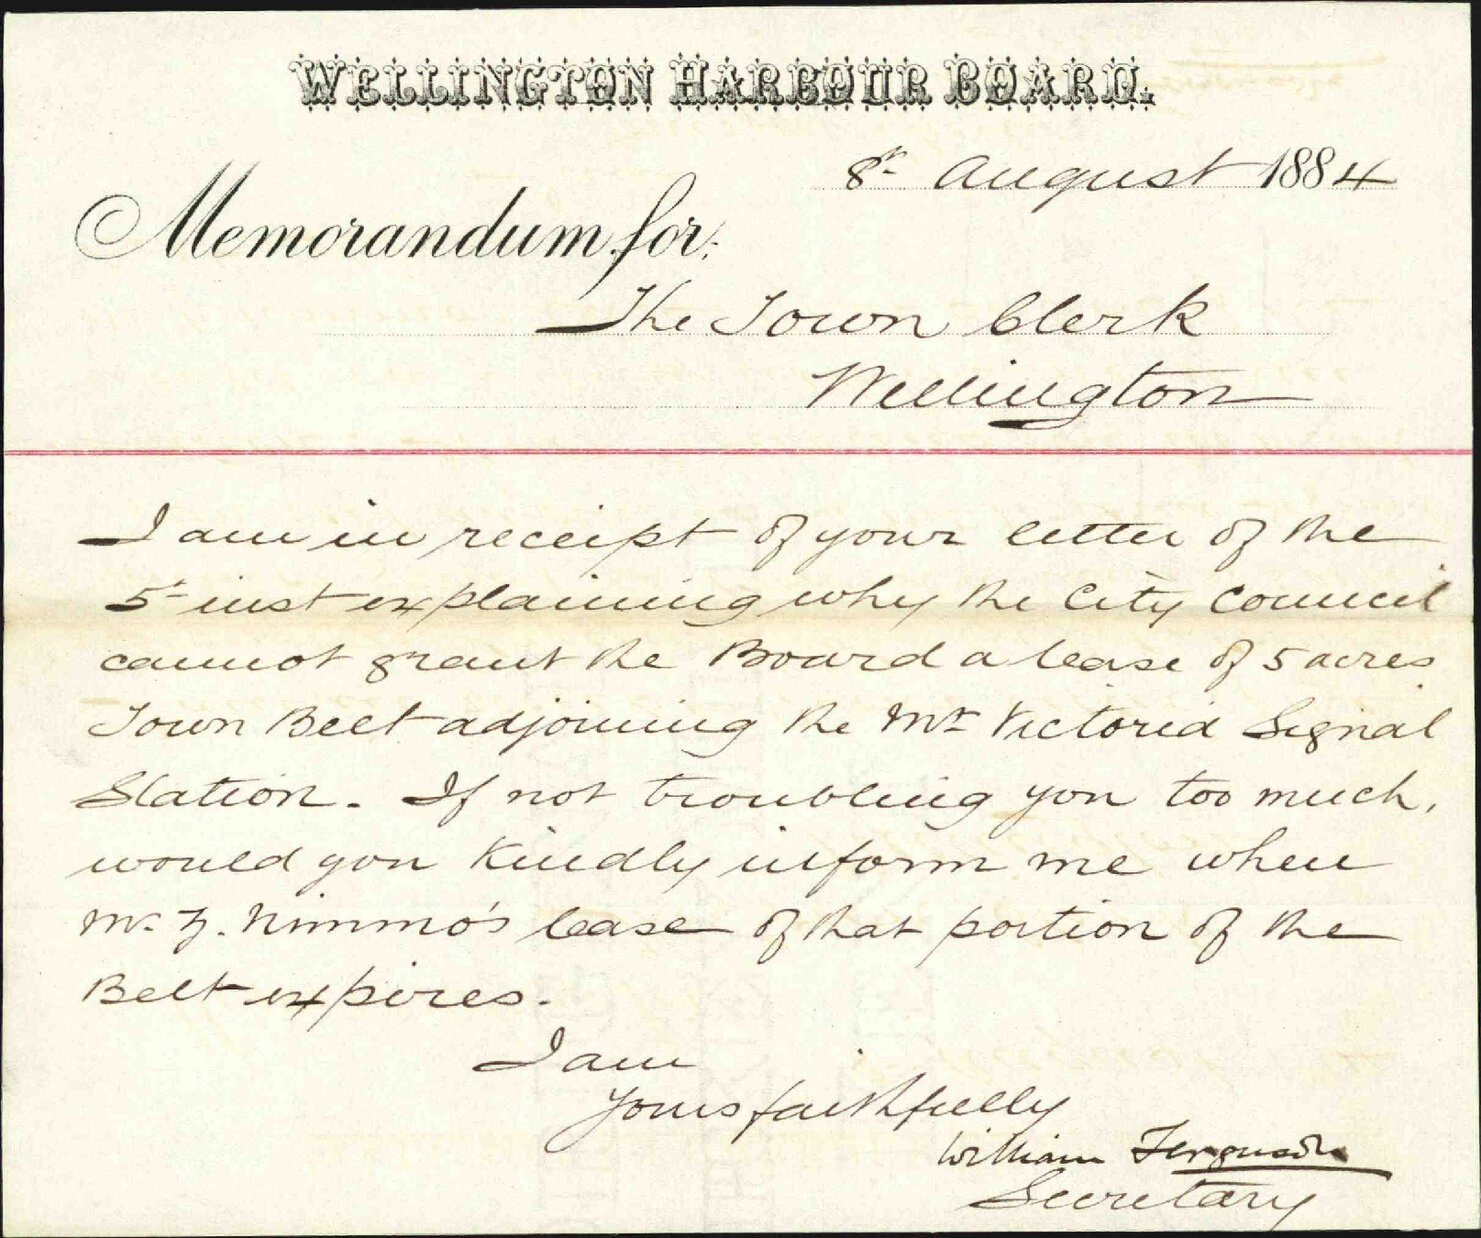 WELLINGTON HARBOUR BOARD.
8th August 1884
Memorandum for:
The Town Clerk
Wellington
I am in receipt of your letter of the
5th inst explaining why the City Council
cannot grant the Board a lease of 5 acres
Town Belt adjoining the Mt Victoria Signal
Station. If not troubling you too much,
would you kindly inform me when
Mr. Nimmo's lease of that portion of the
Belt expires.
I am
Yours faithfully
William Ferguson
Secretary